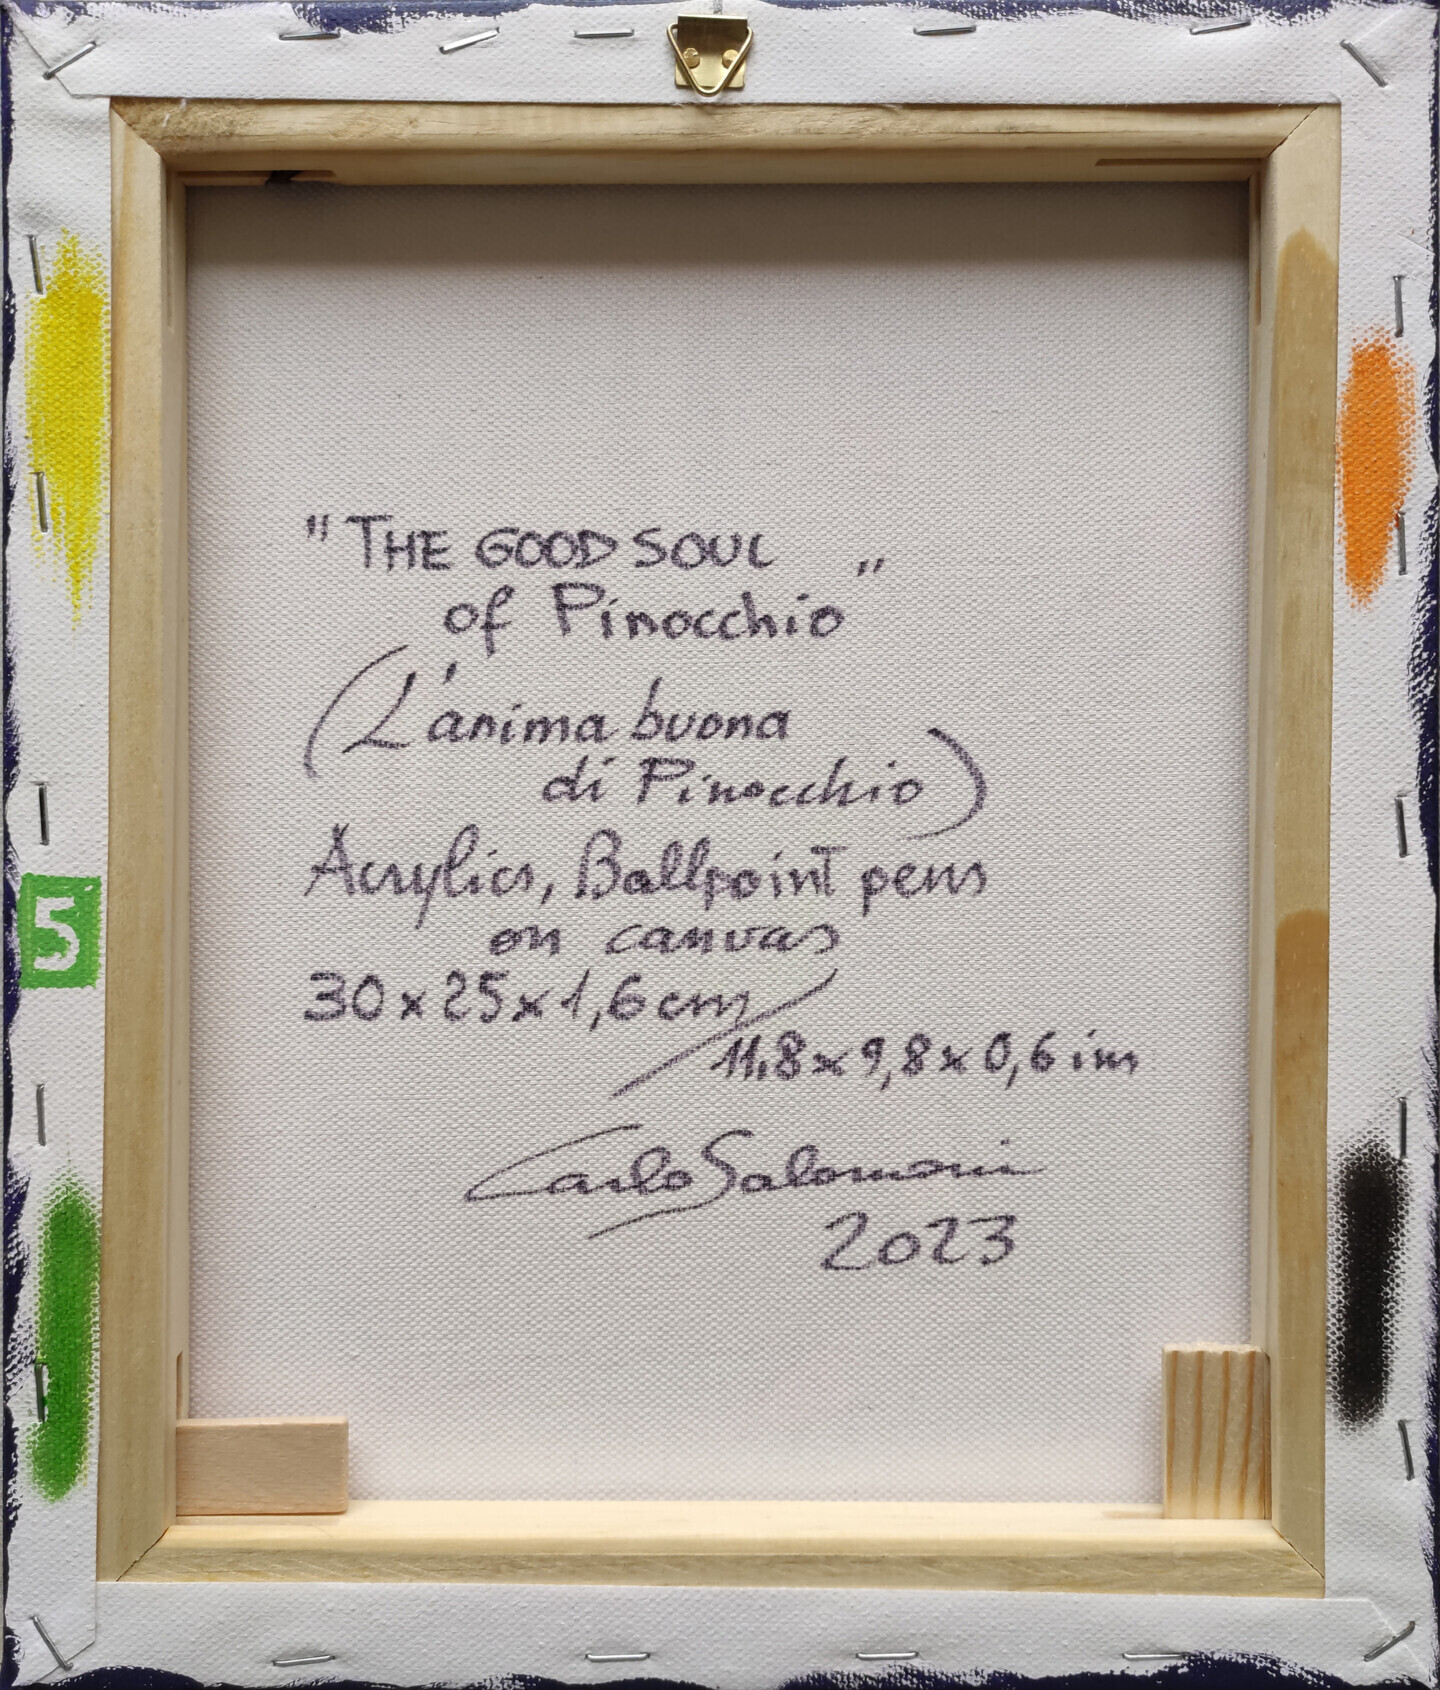 "THE GOOD SOUL
of Pinocchio"
(L'anima buona
di Pinocchio)
Acrylics, Ballpoint pens
on canvas
30x25x1,6cm /
11,8x9,8x0,6 in
Carlo Salomoni
2023
5